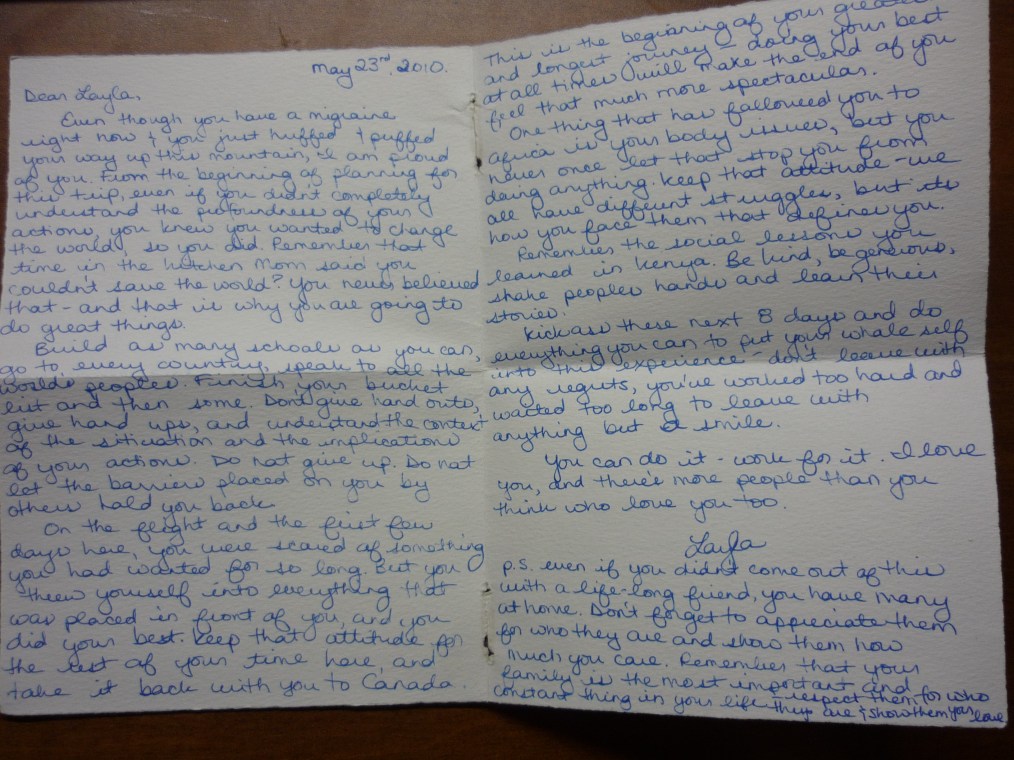 May 23rd, 2010.
Dear Layla,
Even though you have a migraine
right now & you just huffed & puffed
your way up this mountain, I am proud
of you. From the beginning of planning for
this trip, even if you didn't completely
understand the profoundness of your
actions, you knew you wanted to change
the world, so you did. Remember that
time in the kitchen Mom said you
couldn't save the world? You never believed
that - and that is why you are going to
do great things.
Build as many schools as you can,
go to every country, speak to all the
worlds peoples. Finish your bucket
list and then some. Don't give hand outs,
give hand ups, and understand the context
of the situation and the implications
of your actions. Do not give up. Do not
let the barriers placed on you by
others hold you back.
On the flight and the first few
days here, you were scared of something
you had wanted for so long. But you
threw yourself into everything that
was placed in front of you, and you
did your best. Keep that attitude for
the rest of your time here, and
take it back with you to Canada.
This is the beginning of your greatest
and longest journey - doing your best
at all times will make the end of you
feel that much more spectacular.
One thing that has followed you to
Africa is your body issues, but you
never once let that stop you from
doing anything. Keep that attitude - we
all have different struggles, but its
how you face them that defines you.
Remember the social lessons you
learned in Kenya. Be kind, be generous,
shake peoples hands and learn their
stories.
Kickass these next 8 days and do
everything you can to put your whole self
into this experience - don't leave with
any regrets, you've worked too hard and
waited too long to leave with
anything but a smile.
You can do it - work for it. I love
you, and there's more people than you
think who love you too.
Layla
p.s. even if you didn't come out of this
with a life-long friend, you have many
at home. Don't forget to appreciate them
for who they are and show them how
much you care. Remember that your
family is the most important and
constant thing in your life - respect them for who
they are & show them your love